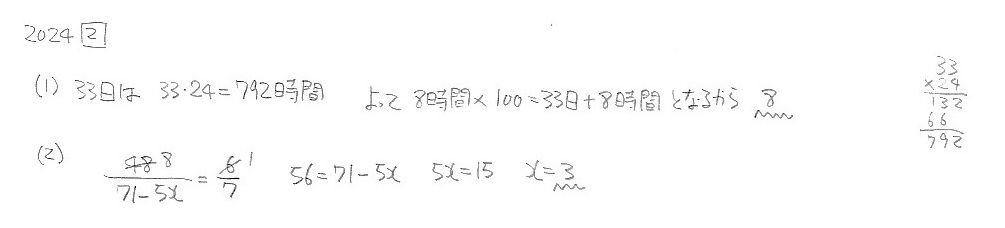 2024 2
(1) 33日は 33·24=792時間 よって 8時間×100=33日+8時間となるから 8
33
×24
132
66
792
(2) 48 8 / 71-5x = 6 1 / 7 56=71-5x 5x=15 x=3